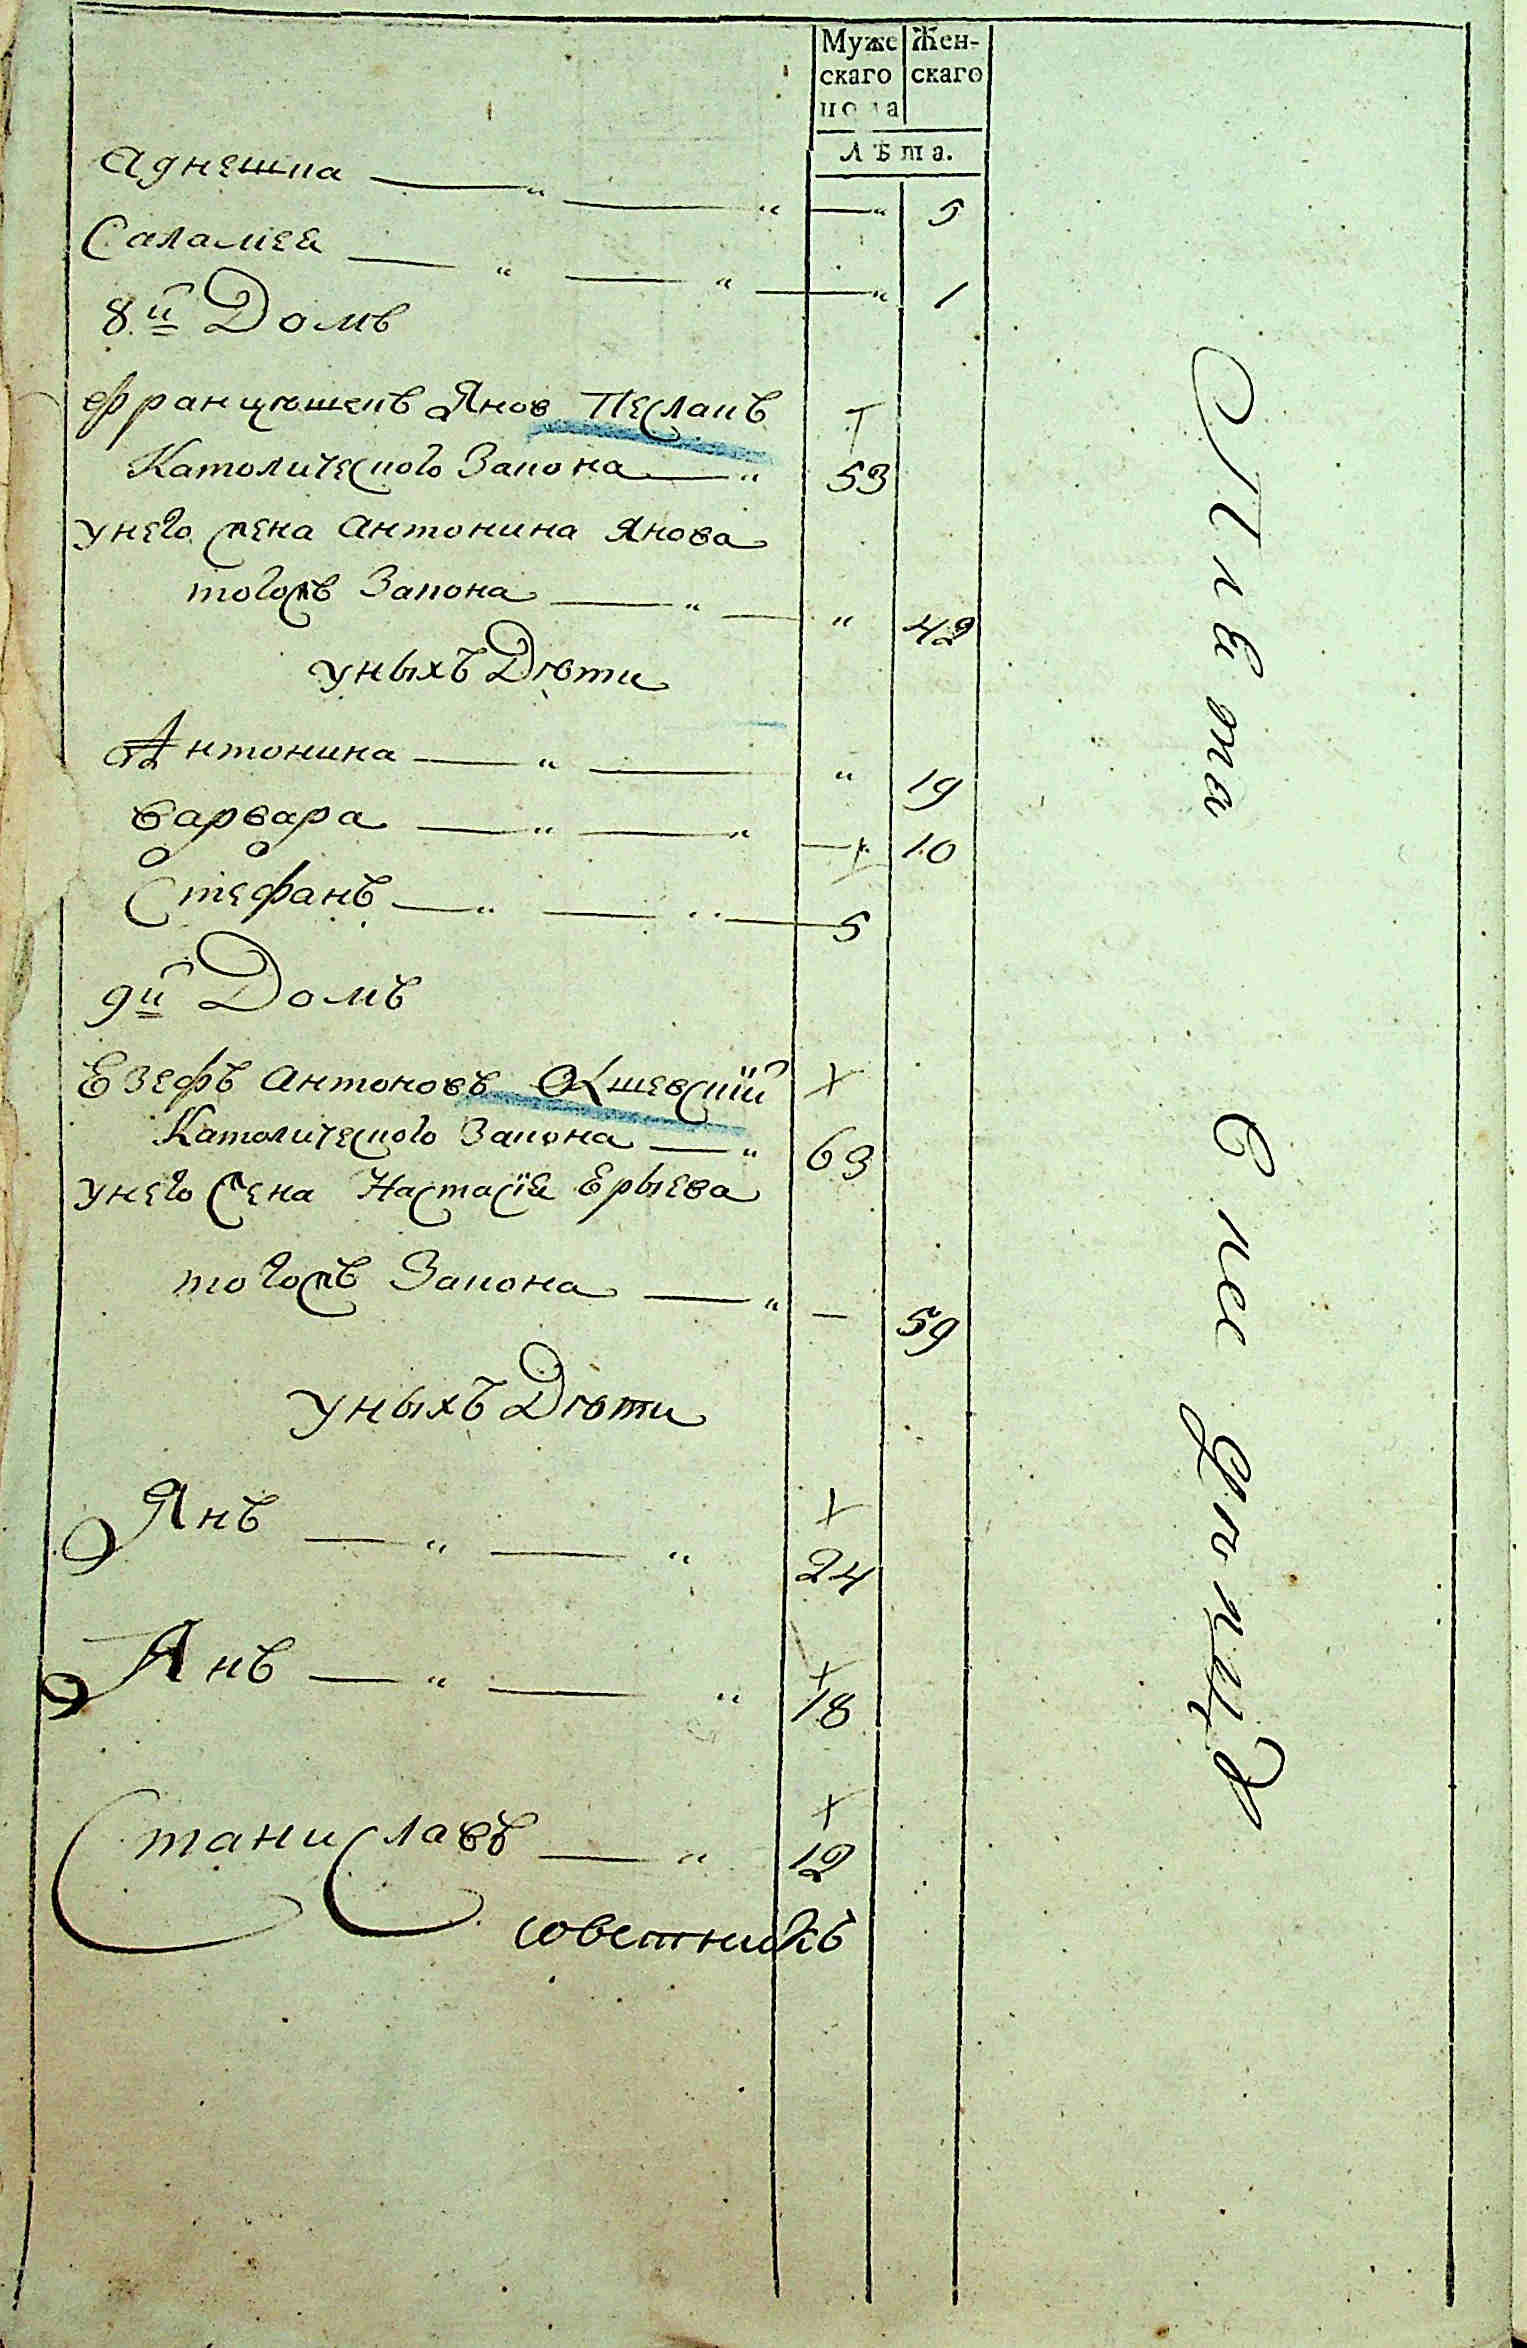 Муже Жен-
скаго скаго
пола
Лѣта.
Агнешка — " — " — " 5
Саламея — " — " — " 1
8й Домъ
Францышекъ Янов Песлакъ
Католического Закона — " 53
унего жена Антонина Янова
тогожъ Закона — " — " 42
уныхъ Дѣти
Антонина — " — " 19
Варвара — " — " — 10
Стефанъ — " — " — 5
9й Домъ
Езефъ Антоновъ
Католического Закона — " 63
унего жена Настасія Ерыева
тогожъ Закона — " — 59
уныхъ Дѣти
Янъ — " — " 24
Янъ — " — " 18
Станиславъ — " 12
советникъ